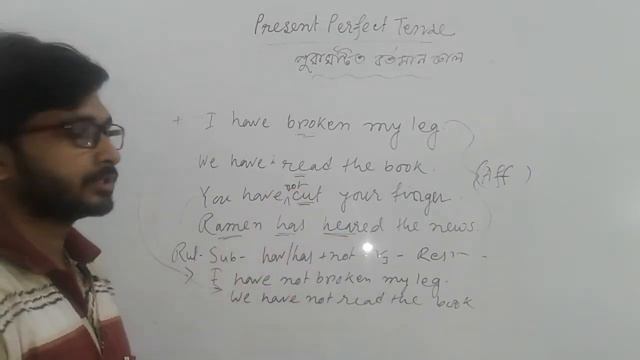 Present Perfect Tense
পুরাঘটিত বর্তমান কাল
+ I have broken my leg.
We have read the book.
You have not cut your finger.
Ramen has heared the news.
(Aff)
Rul- Sub- hav/has + not
I have not broken my leg.
We have not read the book